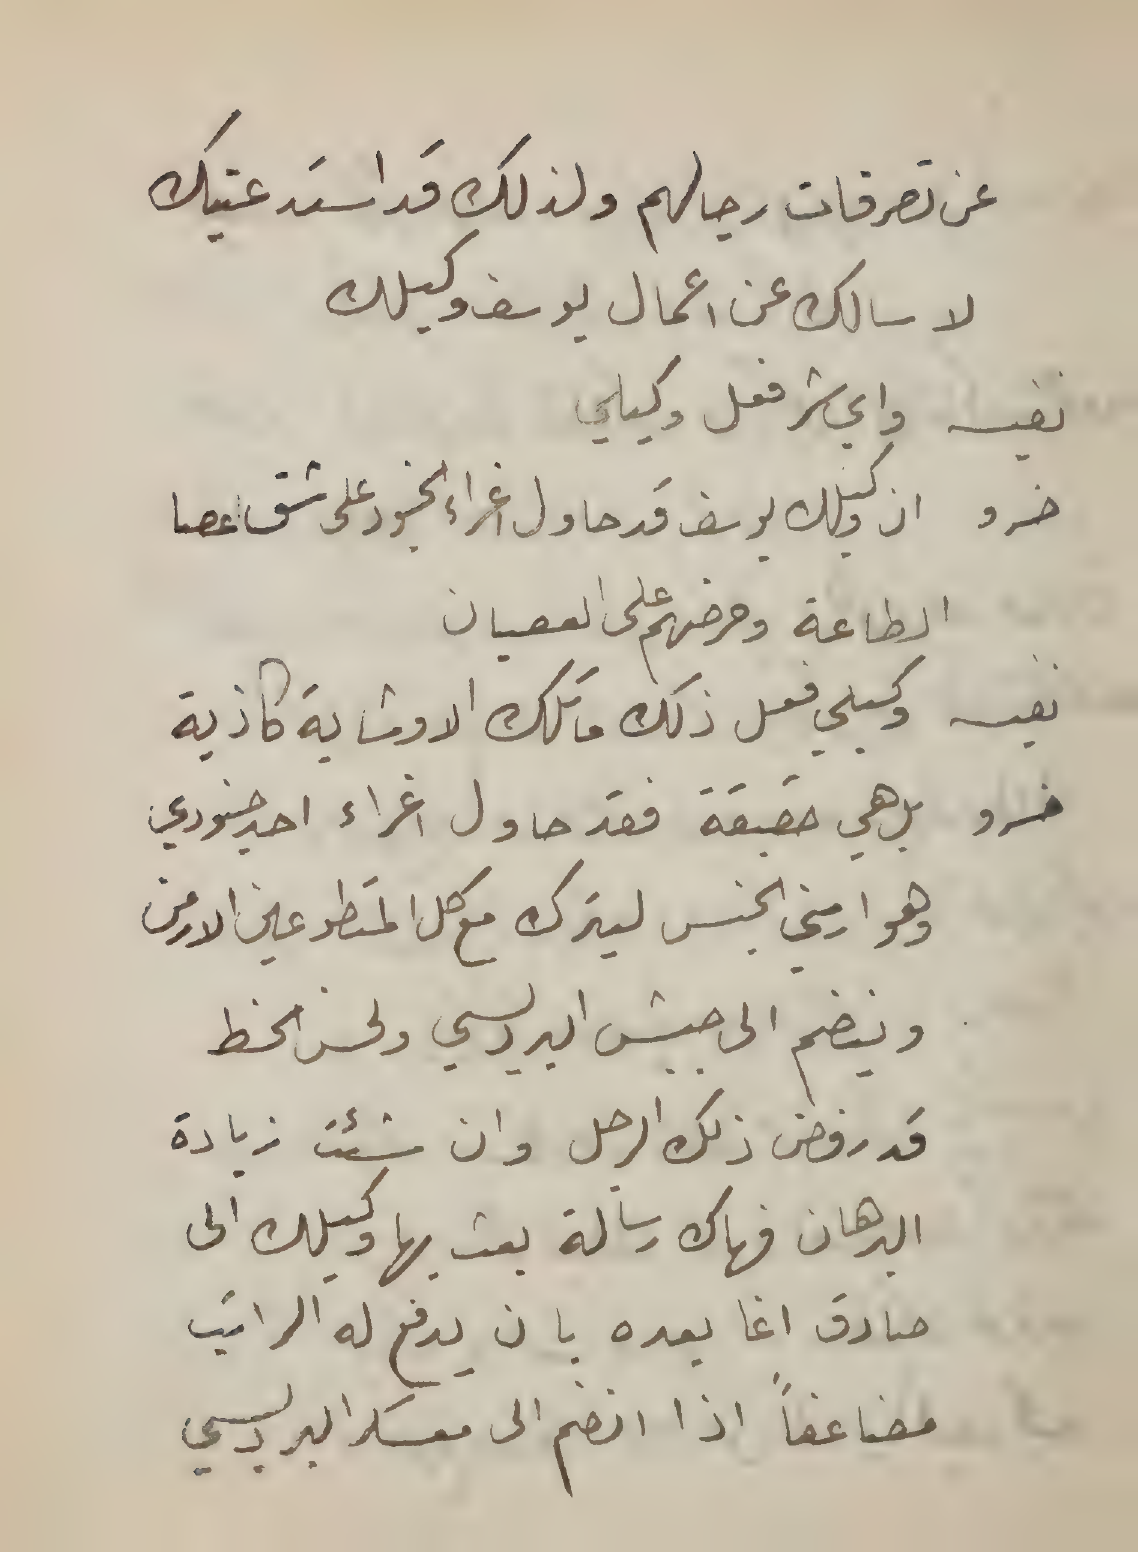 عن تصرفات رجالهم ولذلك قد استدعيتك
لاسالك عن اعمال يوسف وكيلك
نفيسه واي شر فعل وكيلي
خسرو ان وكيلك يوسف قد حاول اغراء الجنود على شق عصا
الطاعة وحرضهم على العصيان
نفيسه وكيلي فعل ذلك ما تلك الا وشاية كاذبة
خسرو بل هي حقيقة فقد حاول اغراء احد جنودي
وهو ارمني الجنس ليترك مع كل المتطوعين الارمن
وينضم الى جيش البرديسي ولحسن الحظ
قد رفض ذلك الرجل وان شئت زيادة
البرهان فهاك رسالة بعث بها وكيلك الى
صادق اغا يعده بان يدفع له الراتب
مضاعفاً اذا انضم الى معسكر البرديسي